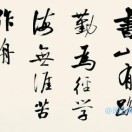 書山有路
勤為径学
海無涯苦
作舟